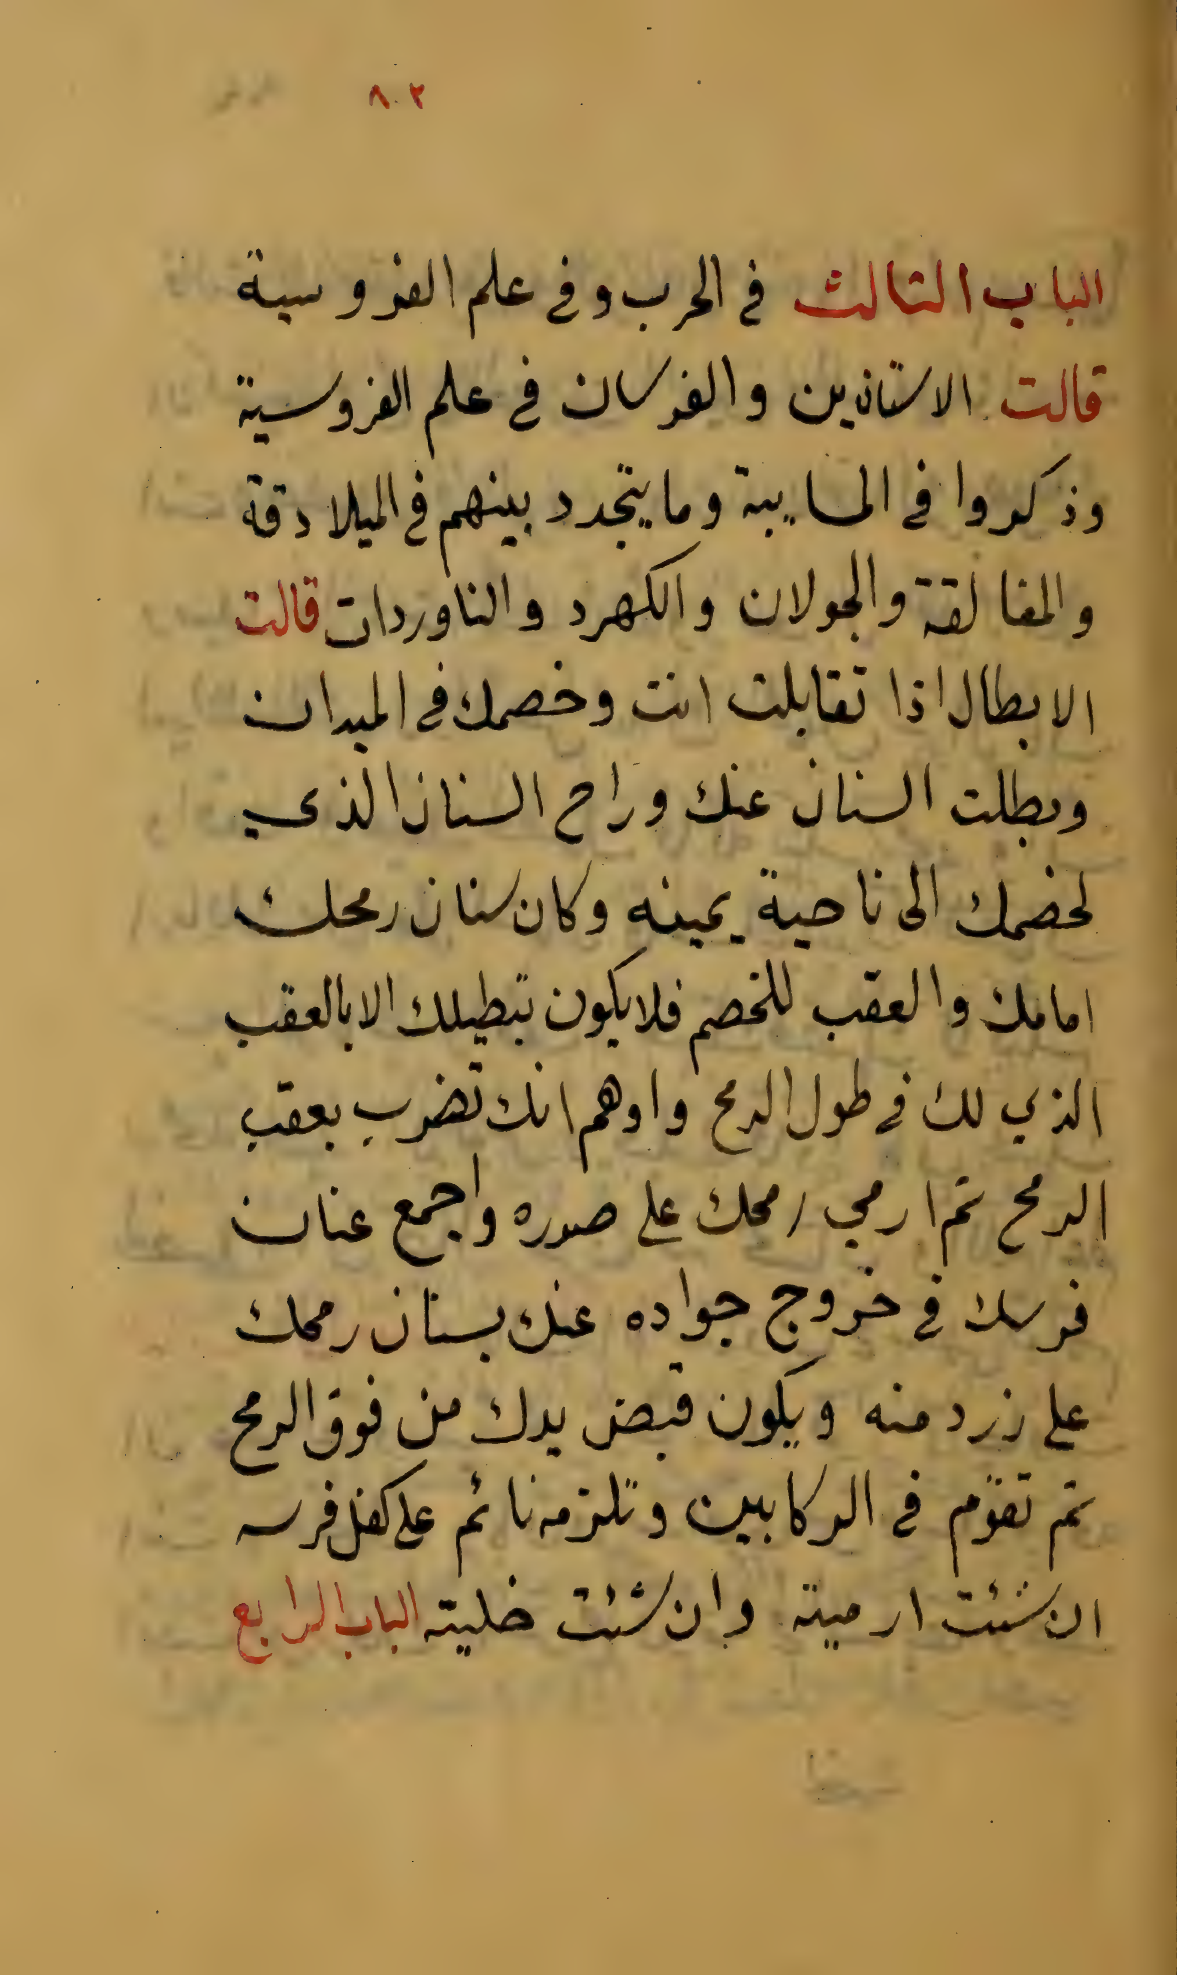 ٨٠٢
الباب الثالث في الحرب وفي علم الفروسية
قالت الاستاذين والفرسان في علم الفروسية
وذكروا في المسايبة وما يتجدد بينهم في الميلادقة
والمفالقة والجولان والكهرد والناوردات قالت
الابطال اذا تقابلت انت وخصمك في الميدان
وبطلت السنان عنك وراح السنان الذي
لخصمك الى ناحية يمينه وكان سنان رمحك
امامك والعقب للخصم فلا يكون تبطيلك الا بالعقب
الذي لك في طول الرمح واوهم انك تضرب بعقب
الرمح ثم ارمي رمحك على صدره واجمع عنان
فرسك في خروج جواده عنك بسنان رمحك
على زرد منه ويكون قبض يدك من فوق الرمح
ثم تقوم في الركابين وتلزمه نائم على كفل فرسه
ان شئت ارميته وان شئت خليته الباب الرابع